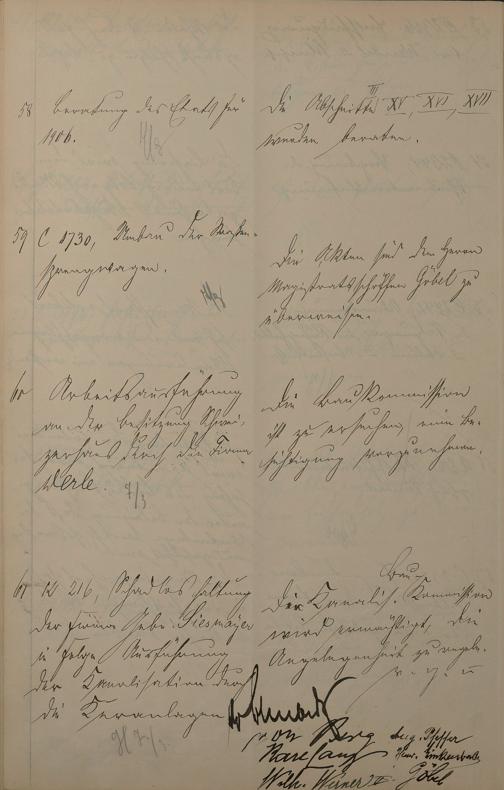 58 Beratung des Etats für
1906.
Die Abschnitte III XV, XVI, XVII
wurden beraten.
59 C 1730, Umbau der Straßen-
sprengwagen.
Die Akten sind dem Herrn
Magistratsschöffen Göbel zu
überweisen.
60 Arbeitsausführung
an der Besitzung Schwei-
zerhaus durch die Firma
Werle. 7/3
Die Baukommission
ist zu ersuchen, eine Be-
sichtigung vorzunehmen.
61 K 216, Schadloshaltung
der Firma Gebr. Siesmayer
in Folge Ausführung
der Kanalisation durch
die Kuranlagen
Bau-
Die Kanalis. Kommission
wird ermächtigt, die
Angelegenheit zu regeln.
v. g. u.
von Berg Aug. Pfeffer
Karl Lang
Wilh. Werner II. Göbel